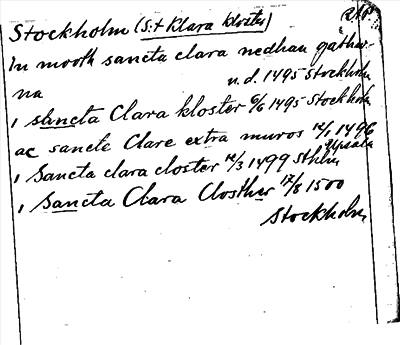 Stockholm (S:t Klara kloster)
In mooth sancta clara nedhan gathw-
na n.d. 1495 Stockholm
i sancta Clara kloster 6/6 1495 Stockholm
ac sancte Clare extra muros 12/1 1496 Upsala
i Sancta clara closter 12/3 1499 Sthlm
i Sancta Clara Closther 17/8 1500
Stockholm